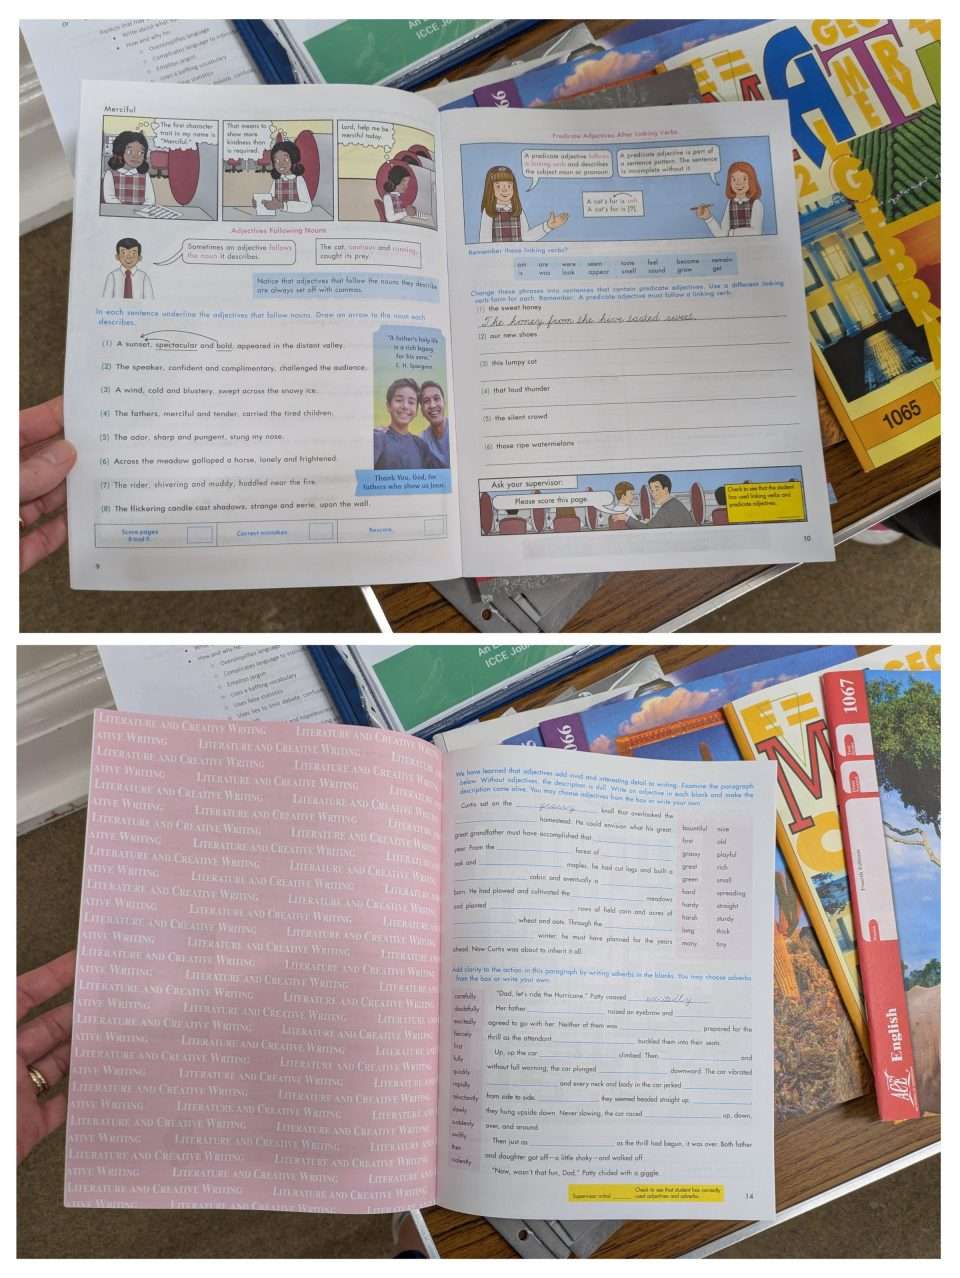 An
ICCE Jou
Write about what
How and why he:
Oversimplifies language
Complicates language to
Employs jargon
Uses a baffling vocabulary
Merciful
The first character
trait in my name is
"Merciful."
That means to
show more
kindness than
is required.
Lord, help me be
merciful today.
Adjectives Following Nouns
Sometimes an adjective follows
the noun it describes.
The cat, cautious and cunning,
caught its prey.
Notice that adjectives that follow the nouns they describe
are always set off with commas.
In each sentence underline the adjectives that follow nouns. Draw an arrow to the noun each
describes.
(1) A sunset, spectacular and bold, appeared in the distant valley.
(2) The speaker, confident and complimentary, challenged the audience.
(3) A wind, cold and blustery, swept across the snowy ice.
(4) The fathers, merciful and tender, carried the tired children.
(5) The odor, sharp and pungent, stung my nose.
(6) Across the meadow galloped a horse, lonely and frightened.
(7) The rider, shivering and muddy, huddled near the fire.
(8) The flickering candle cast shadows, strange and eerie, upon the wall.
"A father's holy life
is a rich legacy
for his sons."
C. H. Spurgeon
Thank You, God, for
fathers who show us Jesus.
Score pages
8 and 9.
Correct mistakes.
Rescore.
9
Predicate Adjectives After Linking Verbs
A predicate adjective follows
a linking verb and describes
the subject noun or pronoun.
A predicate adjective is part of
a sentence pattern. The sentence
is incomplete without it.
A cat's fur is soft.
A cat's fur is [?].
Remember these linking verbs?
am are were seem taste feel become remain
is was look appear smell sound grow get
Change these phrases into sentences that contain predicate adjectives. Use a different linking
verb form for each. Remember: A predicate adjective must follow a linking verb.
(1) the sweet honey
The honey from the hive tasted sweet.
(2) our new shoes
(3) this lumpy cot
(4) that loud thunder
(5) the silent crowd
(6) those ripe watermelons
Ask your supervisor:
Please score this page.
Check to see that the student
has used linking verbs and
predicate adjectives.
10
1065
An E
ICCE Jou
How and why he:
Oversimplifies language
Complicates language to
Employs jargon
Uses a baffling vocabulary
Uses false statistics
Uses lies to limit debate, confuse
LITERATURE AND CREATIVE WRITING
We have learned that adjectives add vivid and interesting detail to writing. Examine the paragraph
below. Without adjectives, the description is dull. Write an adjective in each blank and make the
description come alive. You may choose adjectives from the box or write your own.
Curtis sat on the grassy knoll that overlooked the
homestead. He could envision what his great-
great grandfather must have accomplished that
year. From the forest of
oak and maples, he had cut logs and built a
cabin and eventually a
barn. He had plowed and cultivated the meadows
and planted rows of field corn and acres of
wheat and oats. Through the
winter, he must have planned for the years
ahead. Now Curtis was about to inherit it all.
bountiful nice
first old
grassy playful
great rich
green small
hard spreading
hardy straight
harsh sturdy
long thick
many tiny
Add clarity to the action in this paragraph by writing adverbs in the blanks. You may choose adverbs
from the box or write your own.
carefully
doubtfully
excitedly
fiercely
first
fully
quickly
rapidly
reluctantly
slowly
suddenly
swiftly
then
violently
"Dad, let's ride the Hurricane," Patty coaxed excitedly
Her father raised an eyebrow and
agreed to go with her. Neither of them was prepared for the
thrill as the attendant buckled them into their seats.
Up, up the car climbed. Then and
without full warning, the car plunged downward. The car vibrated
and every neck and body in the car jerked
from side to side. they seemed headed straight up,
they hung upside down. Never slowing, the car raced up, down,
over, and around.
Then just as as the thrill had begun, it was over. Both father
and daughter got off—a little shaky—and walked off
"Now, wasn't that fun, Dad," Patty chided with a giggle.
Supervisor initial
Check to see that student has correctly
used adjectives and adverbs.
14
1067
English